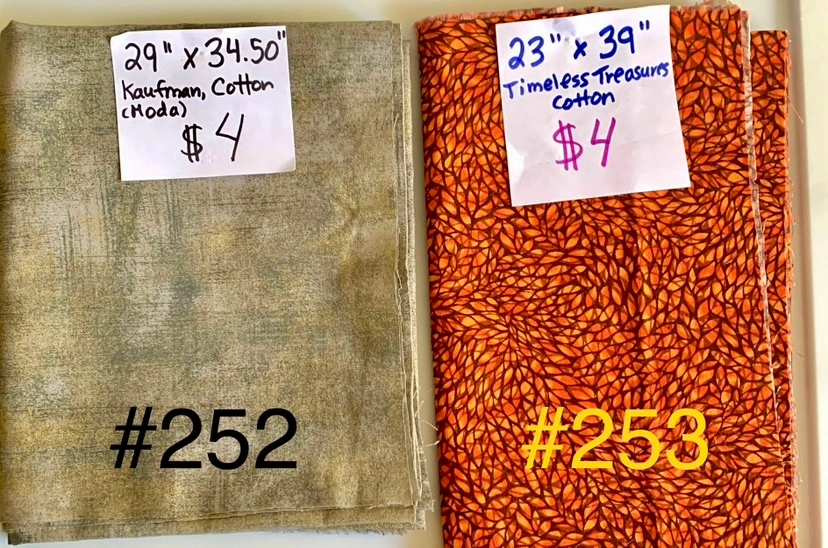 29" x 34.50"
Kaufman, Cotton
(Moda)
$4
23" x 39"
Timeless Treasures
Cotton
$4
#252
#253